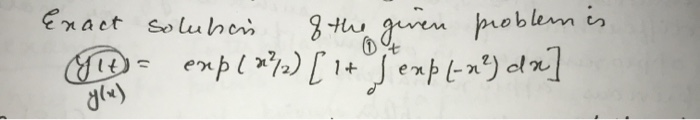 Exact soluhon of the given problem is
y(t) = exp(x²/2) [1+ ∫₀ᵗ exp(-x²) dx]
①
y(x)